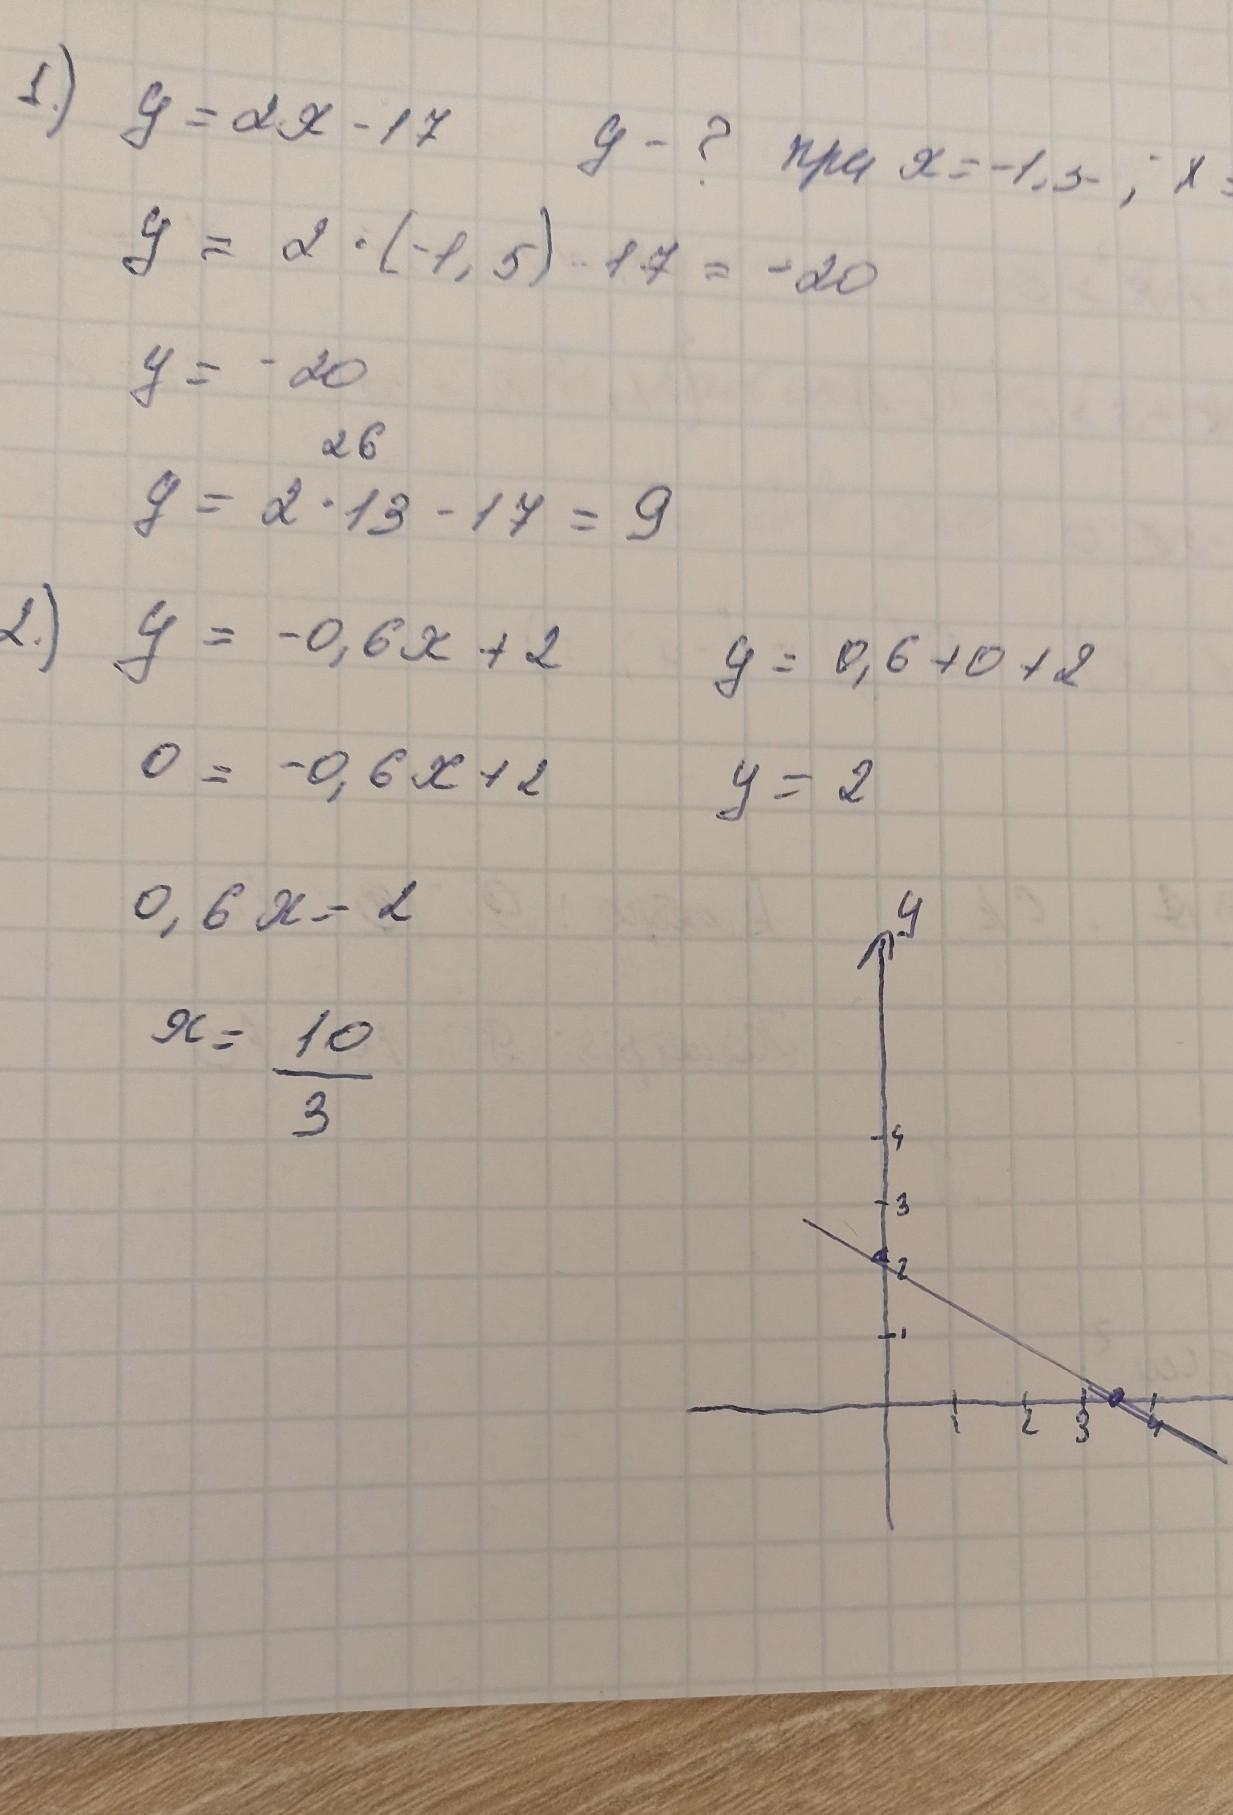 1.) y = 2x - 17 y - ? при x = -1,5 ; x =
y = 2 · (-1,5) - 17 = -20
y = -20
26
y = 2 · 13 - 17 = 9
2.) y = -0,6x + 2 y = 0,6 + 0 + 2
0 = -0,6x + 2 y = 2
0,6x = 2
x = 10
3
y
4
3
2
1
1 2 3 4